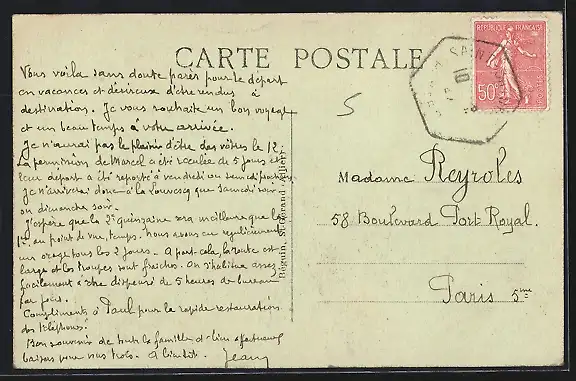 CARTE POSTALE
RÉPUBLIQUE FRANÇAISE
50c
5
Vous voilà sans doute parés pour le départ
en vacances et désireux d'être rendus à
destination. Je vous souhaite un bon voyage
et un beau temps à votre arrivée.
Je n'aurai pas le plaisir d'être des vôtres le 12.
La permission de Marcel a été reculée de 5 jours et
leur départ a été reporté à vendredi ou samedi
Je n'arriverai donc à la Louvesc que samedi soir
ou dimanche soir.
J'espère que la 2e quinzaine sera meilleure que la
1re au point de vue temps. Nous avons eu régulièrement
un orage tous les 2 jours. A part cela, la route est
large et les troupes sont fraîches. On s'habitue assez
facilement à être dispensé de 5 heures de bureau
par jour.
Compliments à Paul pour la rapide restauration
des téléphones.
Bon souvenir de toute la famille et bien affectueux
baisers pour vous trois. A bientôt. Jeany
Madame Reyroles
58 Boulevard Port Royal.
Paris 5me